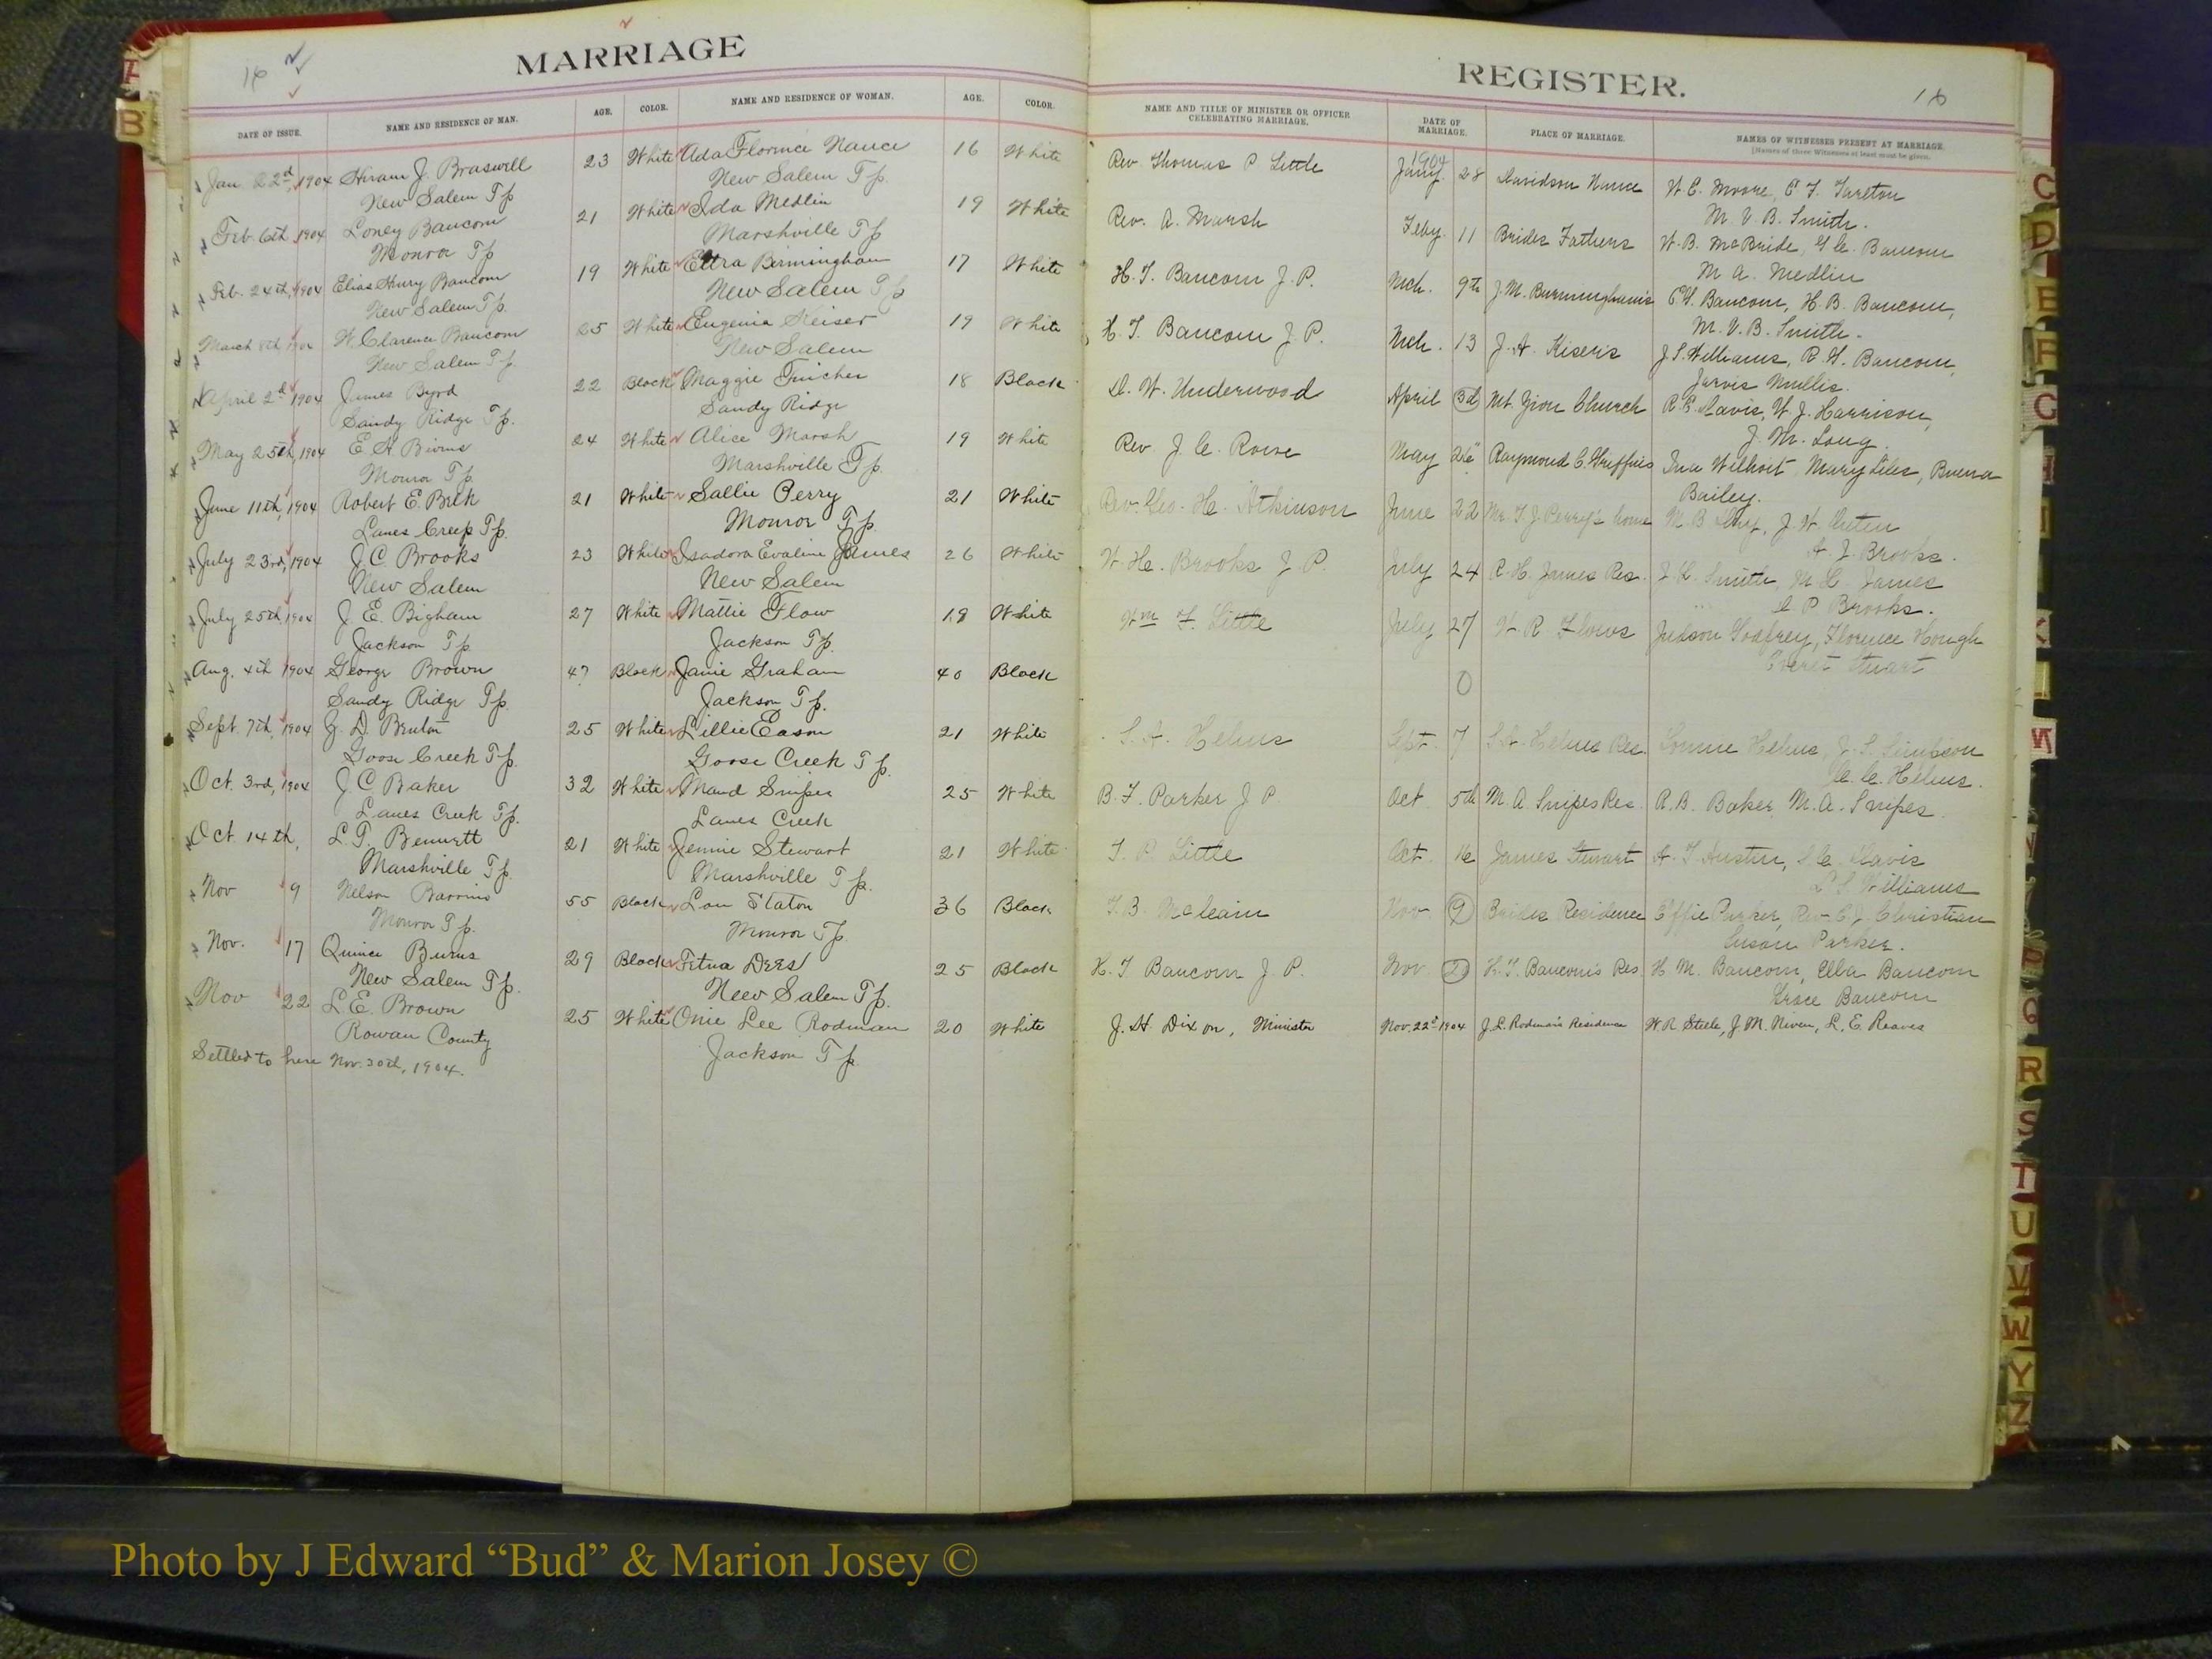 16
MARRIAGE
DATE OF ISSUE. NAME AND RESIDENCE OF MAN. AGE. COLOR. NAME AND RESIDENCE OF WOMAN. AGE. COLOR.
Jan 22d, 1904 Hiram J. Braswell 23 White Ada Florince Nance 16 White
New Salem Tp New Salem Tp.
Feb. 6th, 1904 Loney Baucom 21 White Ida Medlin 19 White
Monroe Tp Marshville Tp
Feb. 24th, 1904 Elias Henry Baucom 19 White Ettra Birmingham 17 White
New Salem Tp. New Salem Tp
March 8th W. Clarence Baucom 25 White Eugenia Keiser 19 White
New Salem Tp New Salem
April 2d 1904 James Byrd 22 Black Maggie 18 Black
Sandy Ridge Tp. Sandy Ridge
May 25th, 1904 E. A. Bivins 24 White Alice Marsh 19 White
Monroe Tp Marshville Tp.
June 11th, 1904 Robert E. Belk 21 White Sallie Perry 21 White
Lanes Creek Tp. Monroe Tp.
July 23rd, 1904 J. C. Brooks 23 White Isadora Evaline James 26 White
New Salem New Salem
July 25th, 1904 J. E. Bigham 27 White Mattie Flow 18 White
Jackson Tp Jackson Tp.
Aug. 4th 1904 George Brown 47 Black Janie Graham 40 Black
Sandy Ridge Tp. Jackson Tp.
Sept. 7th, 1904 J. D. Benton 25 White Lillie Eason 21 White
Goose Creek Tp. Goose Creek Tp.
Oct. 3rd, 1904 J. C. Baker 32 White Maud Snipes 25 White
Lanes Creek Tp. Lanes Creek
Oct 14th, L. T. Bennett 21 White Jennie Stewart 21 White
Marshville Tp. Marshville Tp.
Nov 9 Nelson Barrino 55 Black Lou Staton 36 Black
Monroe Tp. Monroe Tp.
Nov. 17 Quince Burns 29 Black Fetna Dees 25 Black
New Salem Tp. New Salem Tp.
Nov 22 L. E. Brown 25 White Onie Lee Rodman 20 White
Rowan County Jackson Tp.
Settled to here Nov. 30th, 1904.
REGISTER.
16
NAME AND TITLE OF MINISTER OR OFFICER CELEBRATING MARRIAGE. DATE OF MARRIAGE. PLACE OF MARRIAGE. NAMES OF WITNESSES PRESENT AT MARRIAGE.
[Names of three Witnesses at least must be given.
1904
Rev. Thomas P Little Jany. 28 Davidson Nance W. C. Moore, C. F. Tarlton
M. V. B. Smith.
Rev. A. Marsh Feby. 11 Brides Fathers W. B. McBride, G. C. Baucom
M. A. Medlin
H. T. Baucom J. P. Mch. 9th J. M. Burmingham's Baucom, H. B. Baucom,
M. V. B. Smith.
H. T. Baucom J. P. Mch. 13 J. A. Kiser's J. S. Williams, R. H. Baucom,
Jarvis Mullis.
D. W. Underwood April 3d Mt. Zion Church R. E. Davis, W. J. Harrison,
J. M. Long.
Rev. J. C. Rowe May 26 Raymond C. Griffins Ina Wilhoit, Mary Liles, Buena
Bailey.
Rev. Geo. H. Atkinson June 22 Mr. T. J. Perry's home M. B.
A. J. Brooks.
W. H. Brooks J. P. July 24 R. H. James Res. J. K. Smith, M. L. James
C. P. Brooks.
Wm F. Little July 27 W. R. Flows Judson Godfrey, Florence Hough
Everet Stuart
0
S. A. Helms Sept. 7 S. A. Helms Res. Lonnie Helms, J. S. Simpson
C. C. Helms.
B. F. Parker J P Oct 5th M. A. Snipes Res. R. B. Baker, M. A. Snipes
T. P. Little Oct. 16 James Stewart A. T. Austin, D. C. Davis
L. S. Williams
T. B. McLeain Nov. 9 Brides Residence Effie Parker, Rev. C. J. Christian
Susan Parker.
H. T. Baucom J. P. Nov. 20 H. T. Baucom's Res. H. M. Baucom, Ella Baucom
Grace Baucom
J. H. Dixon, Minister Nov. 22d 1904 J. L. Rodman's Residence W. R. Steele, J. M. Niven, L. E. Reaves
B
C
D
E
F
G
H
I
K
M
P
Q
R
S
T
U
V
W
Y
Z
Photo by J Edward “Bud” & Marion Josey ©